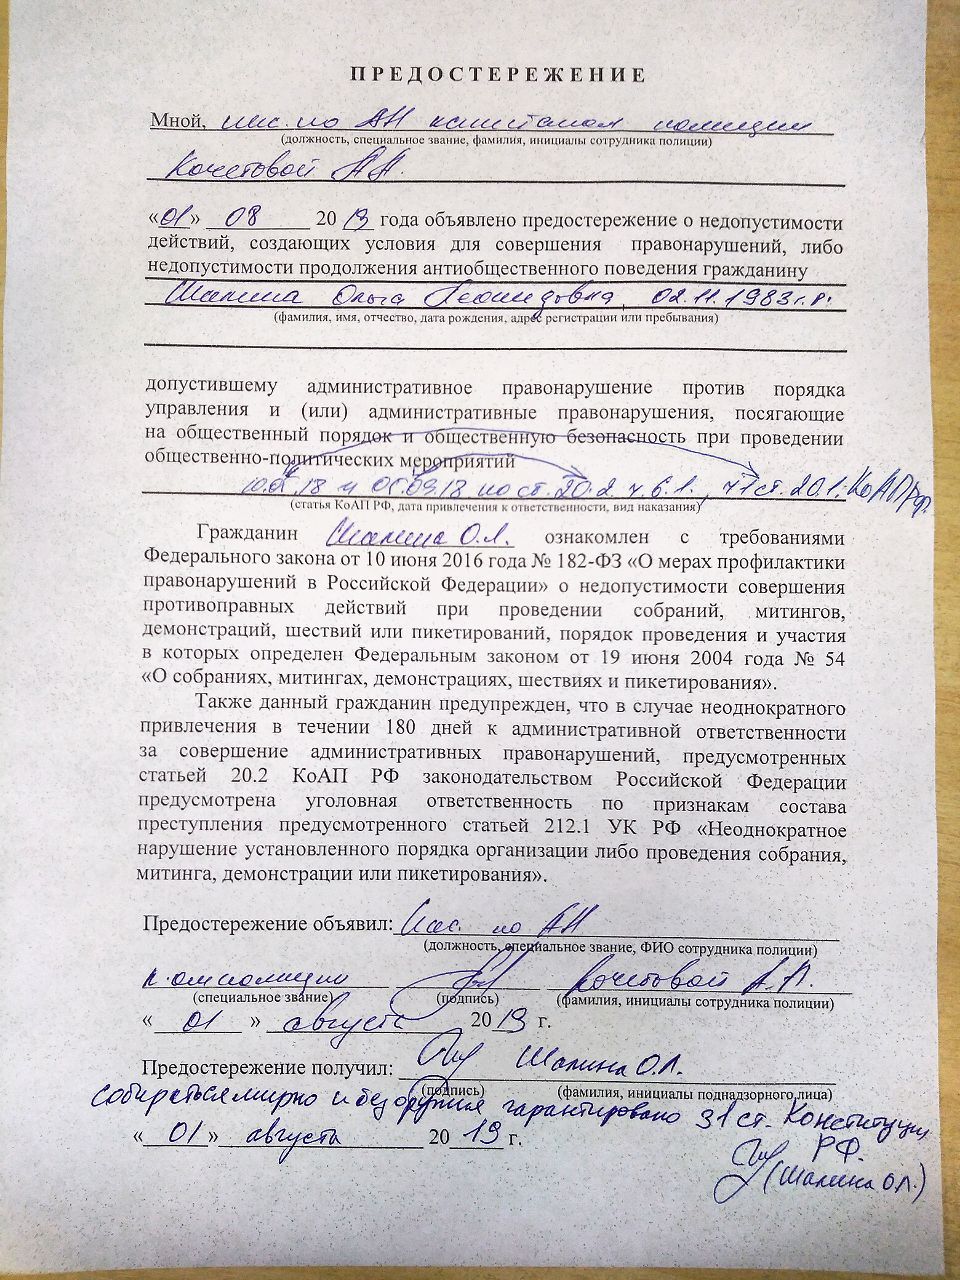 ПРЕДОСТЕРЕЖЕНИЕ
Мной, инс. по АН капитаном полиции
(должность, специальное звание, фамилия, инициалы сотрудника полиции)
Кочетовой А.П.
«01» 08 2019 года объявлено предостережение о недопустимости
действий, создающих условия для совершения правонарушений, либо
недопустимости продолжения антиобщественного поведения гражданину
Шалина Ольга Леонидовна, 02.11.1983 г.р.
(фамилия, имя, отчество, дата рождения, адрес регистрации или пребывания)
допустившему административное правонарушение против порядка
управления и (или) административные правонарушения, посягающие
на общественный порядок и общественную безопасность при проведении
общественно-политических мероприятий
18 и 18 по ст. 20.2 ч.6.1., ч.1 ст. 20.1. КоАП РФ
(статья КоАП РФ, дата привлечения к ответственности, вид наказания)
Гражданин Шалина О.Л. ознакомлен с требованиями
Федерального закона от 10 июня 2016 года № 182-ФЗ «О мерах профилактики
правонарушений в Российской Федерации» о недопустимости совершения
противоправных действий при проведении собраний, митингов,
демонстраций, шествий или пикетирований, порядок проведения и участия
в которых определен Федеральным законом от 19 июня 2004 года № 54
«О собраниях, митингах, демонстрациях, шествиях и пикетирования».
Также данный гражданин предупрежден, что в случае неоднократного
привлечения в течении 180 дней к административной ответственности
за совершение административных правонарушений, предусмотренных
статьей 20.2 КоАП РФ законодательством Российской Федерации
предусмотрена уголовная ответственность по признакам состава
преступления предусмотренного статьей 212.1 УК РФ «Неоднократное
нарушение установленного порядка организации либо проведения собрания,
митинга, демонстрации или пикетирования».
Предостережение объявил: Инс. по АН
(должность, специальное звание, ФИО сотрудника полиции)
полиции Кочетовой А.П.
(специальное звание) (подпись) (фамилия, инициалы сотрудника полиции)
« 01 » августа 2019 г.
Предостережение получил: Шалина О.Л.
(подпись) (фамилия, инициалы поднадзорного лица)
собираться мирно и без оружия гарантировано 31 ст. Конституции
РФ.
« 01 » августа 2019 г.
(Шалина О.Л.)